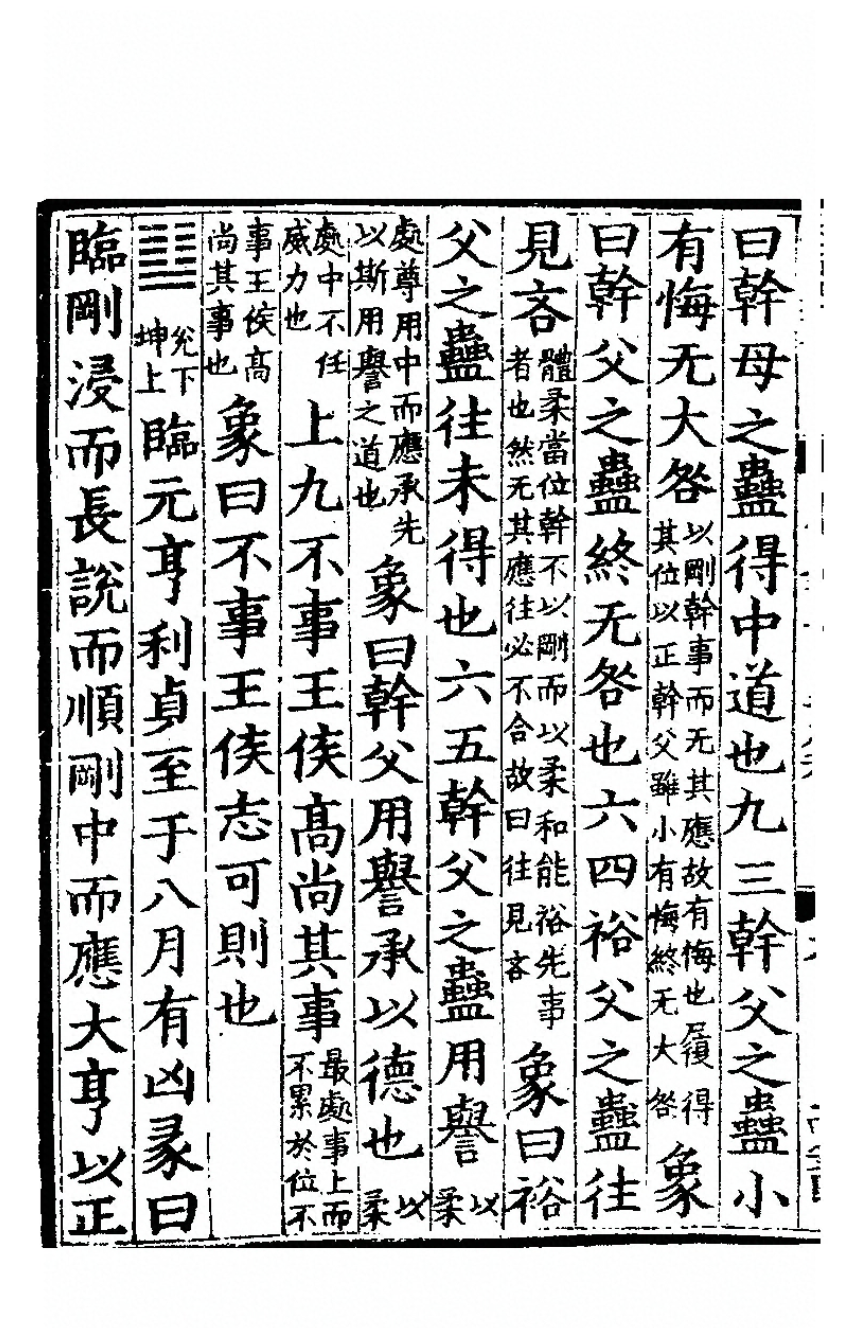 曰幹母之蠱得中道也九三幹父之蠱小
有悔无大咎以剛幹事而无其應故有悔也履得其位以正幹父雖小有悔終无大咎象
曰幹父之蠱終无咎也六四裕父之蠱往
見吝體柔當位幹不以剛而以柔和能裕先事者也然无其應往必不合故曰往見吝象曰裕
父之蠱往未得也六五幹父之蠱用譽以柔
處尊用中而應承先以斯用譽之道也象曰幹父用譽承以德也以柔
處中不任威力也上九不事王侯高尚其事最處事上而不累於位不
事王侯高尚其事也象曰不事王侯志可則也
䷒兊下坤上臨元亨利貞至于八月有凶彖曰
臨剛浸而長說而順剛中而應大亨以正